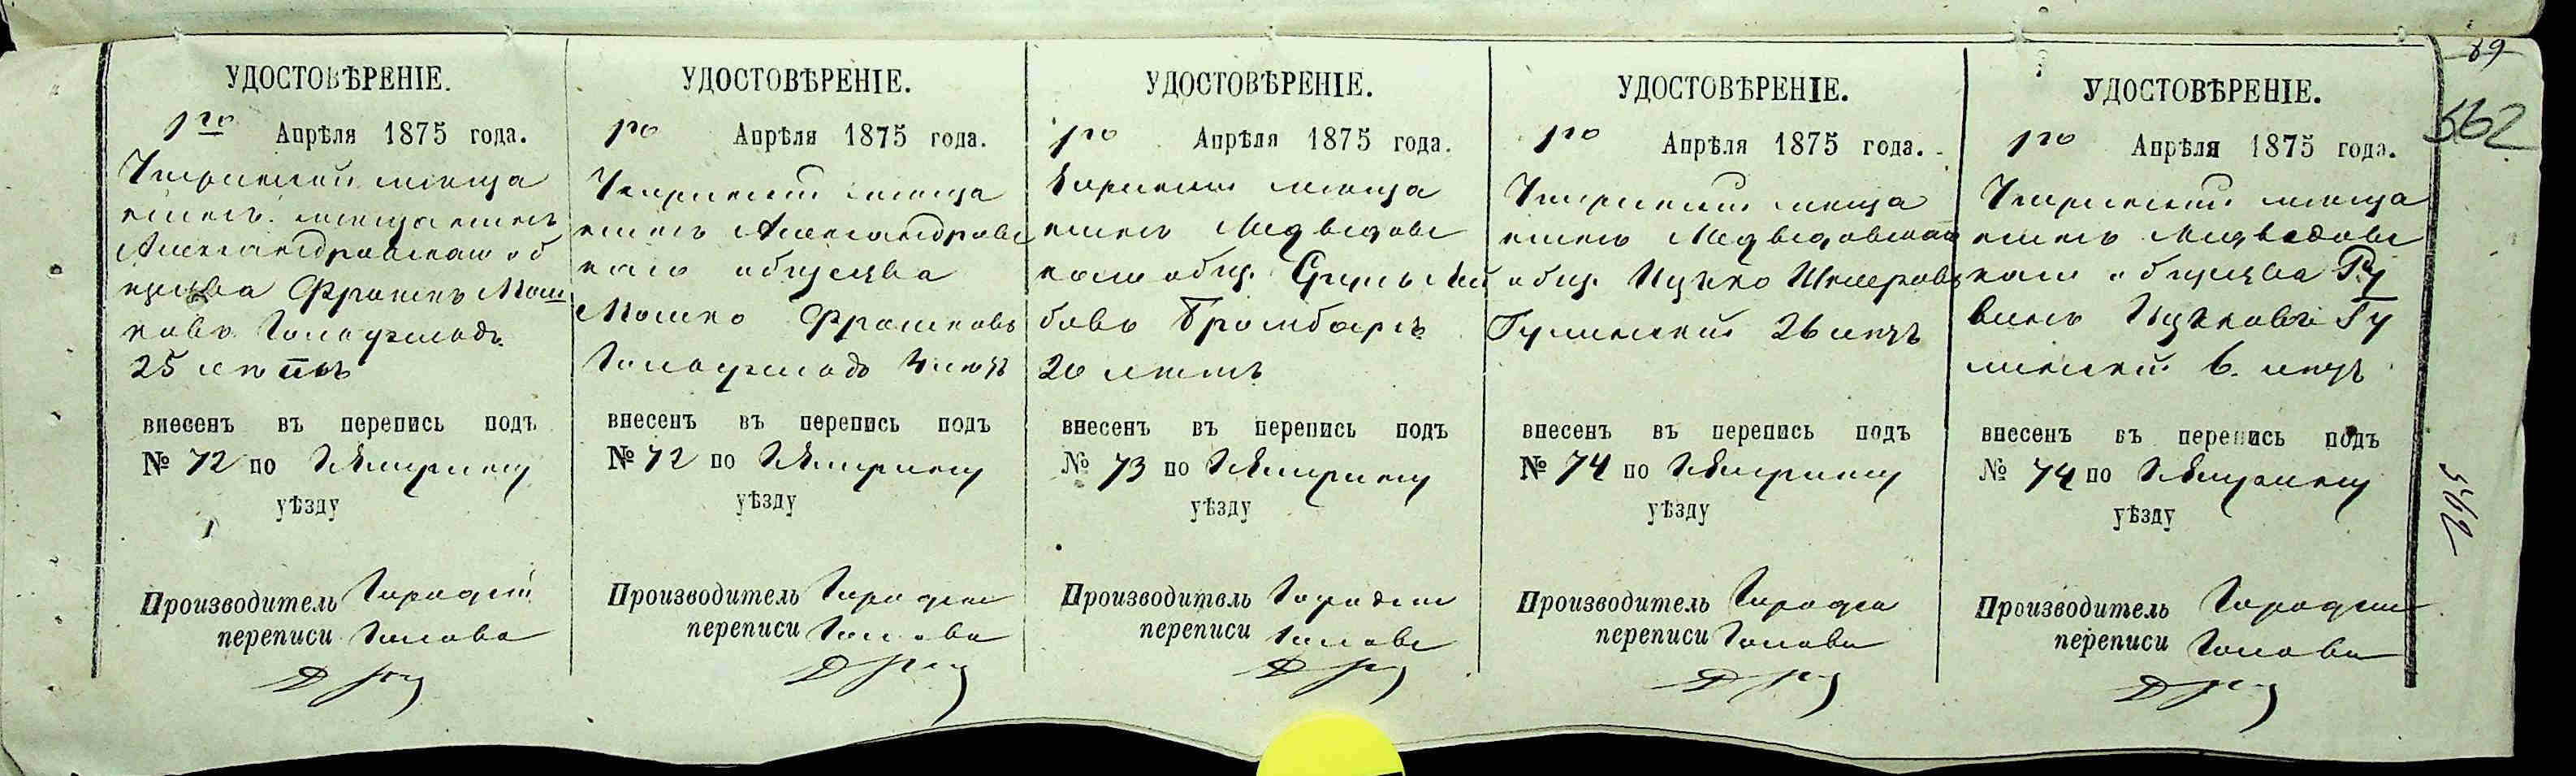 69
562
УДОСТОВѢРЕНІЕ.
1го Апрѣля 1875 года.
Чигринскій меща
нинъ мещанинъ
Александровскаго об
щества Фроимъ Мош
ковъ
25 лѣтъ
внесенъ въ перепись подъ
№ 72 по г. Чигрину
уѣзду
Производитель Городской
переписи Голова
УДОСТОВѢРЕНІЕ.
1го Апрѣля 1875 года.
Чигринскій меща
нинъ Александровс
каго общества
Мошко Фроимковъ
4 лѣтъ
внесенъ въ перепись подъ
№ 72 по г. Чигрину
уѣзду
Производитель Городской
переписи Голова
УДОСТОВѢРЕНІЕ.
1го Апрѣля 1875 года.
Чигринскій меща
нинъ Медвѣдовс
каго общ. Сруль Лей
бовъ
20 лѣтъ
внесенъ въ перепись подъ
№ 73 по г. Чигрину
уѣзду
Производитель Городской
переписи Голова
УДОСТОВѢРЕНІЕ.
1го Апрѣля 1875 года.
Чигринскій меща
нинъ Медвѣдовскаго
общ. Ицько
26 лѣтъ
внесенъ въ перепись подъ
№ 74 по г. Чигрину
уѣзду
Производитель Городской
переписи Голова
УДОСТОВѢРЕНІЕ.
1го Апрѣля 1875 года.
Чигринскій меща
нинъ Медведовс
каго общества Ру
винъ Ицьковъ Гу
6. лѣтъ
внесенъ въ перепись подъ
№ 74 по г. Чигрину
уѣзду
Производитель Городской
переписи Голова
562